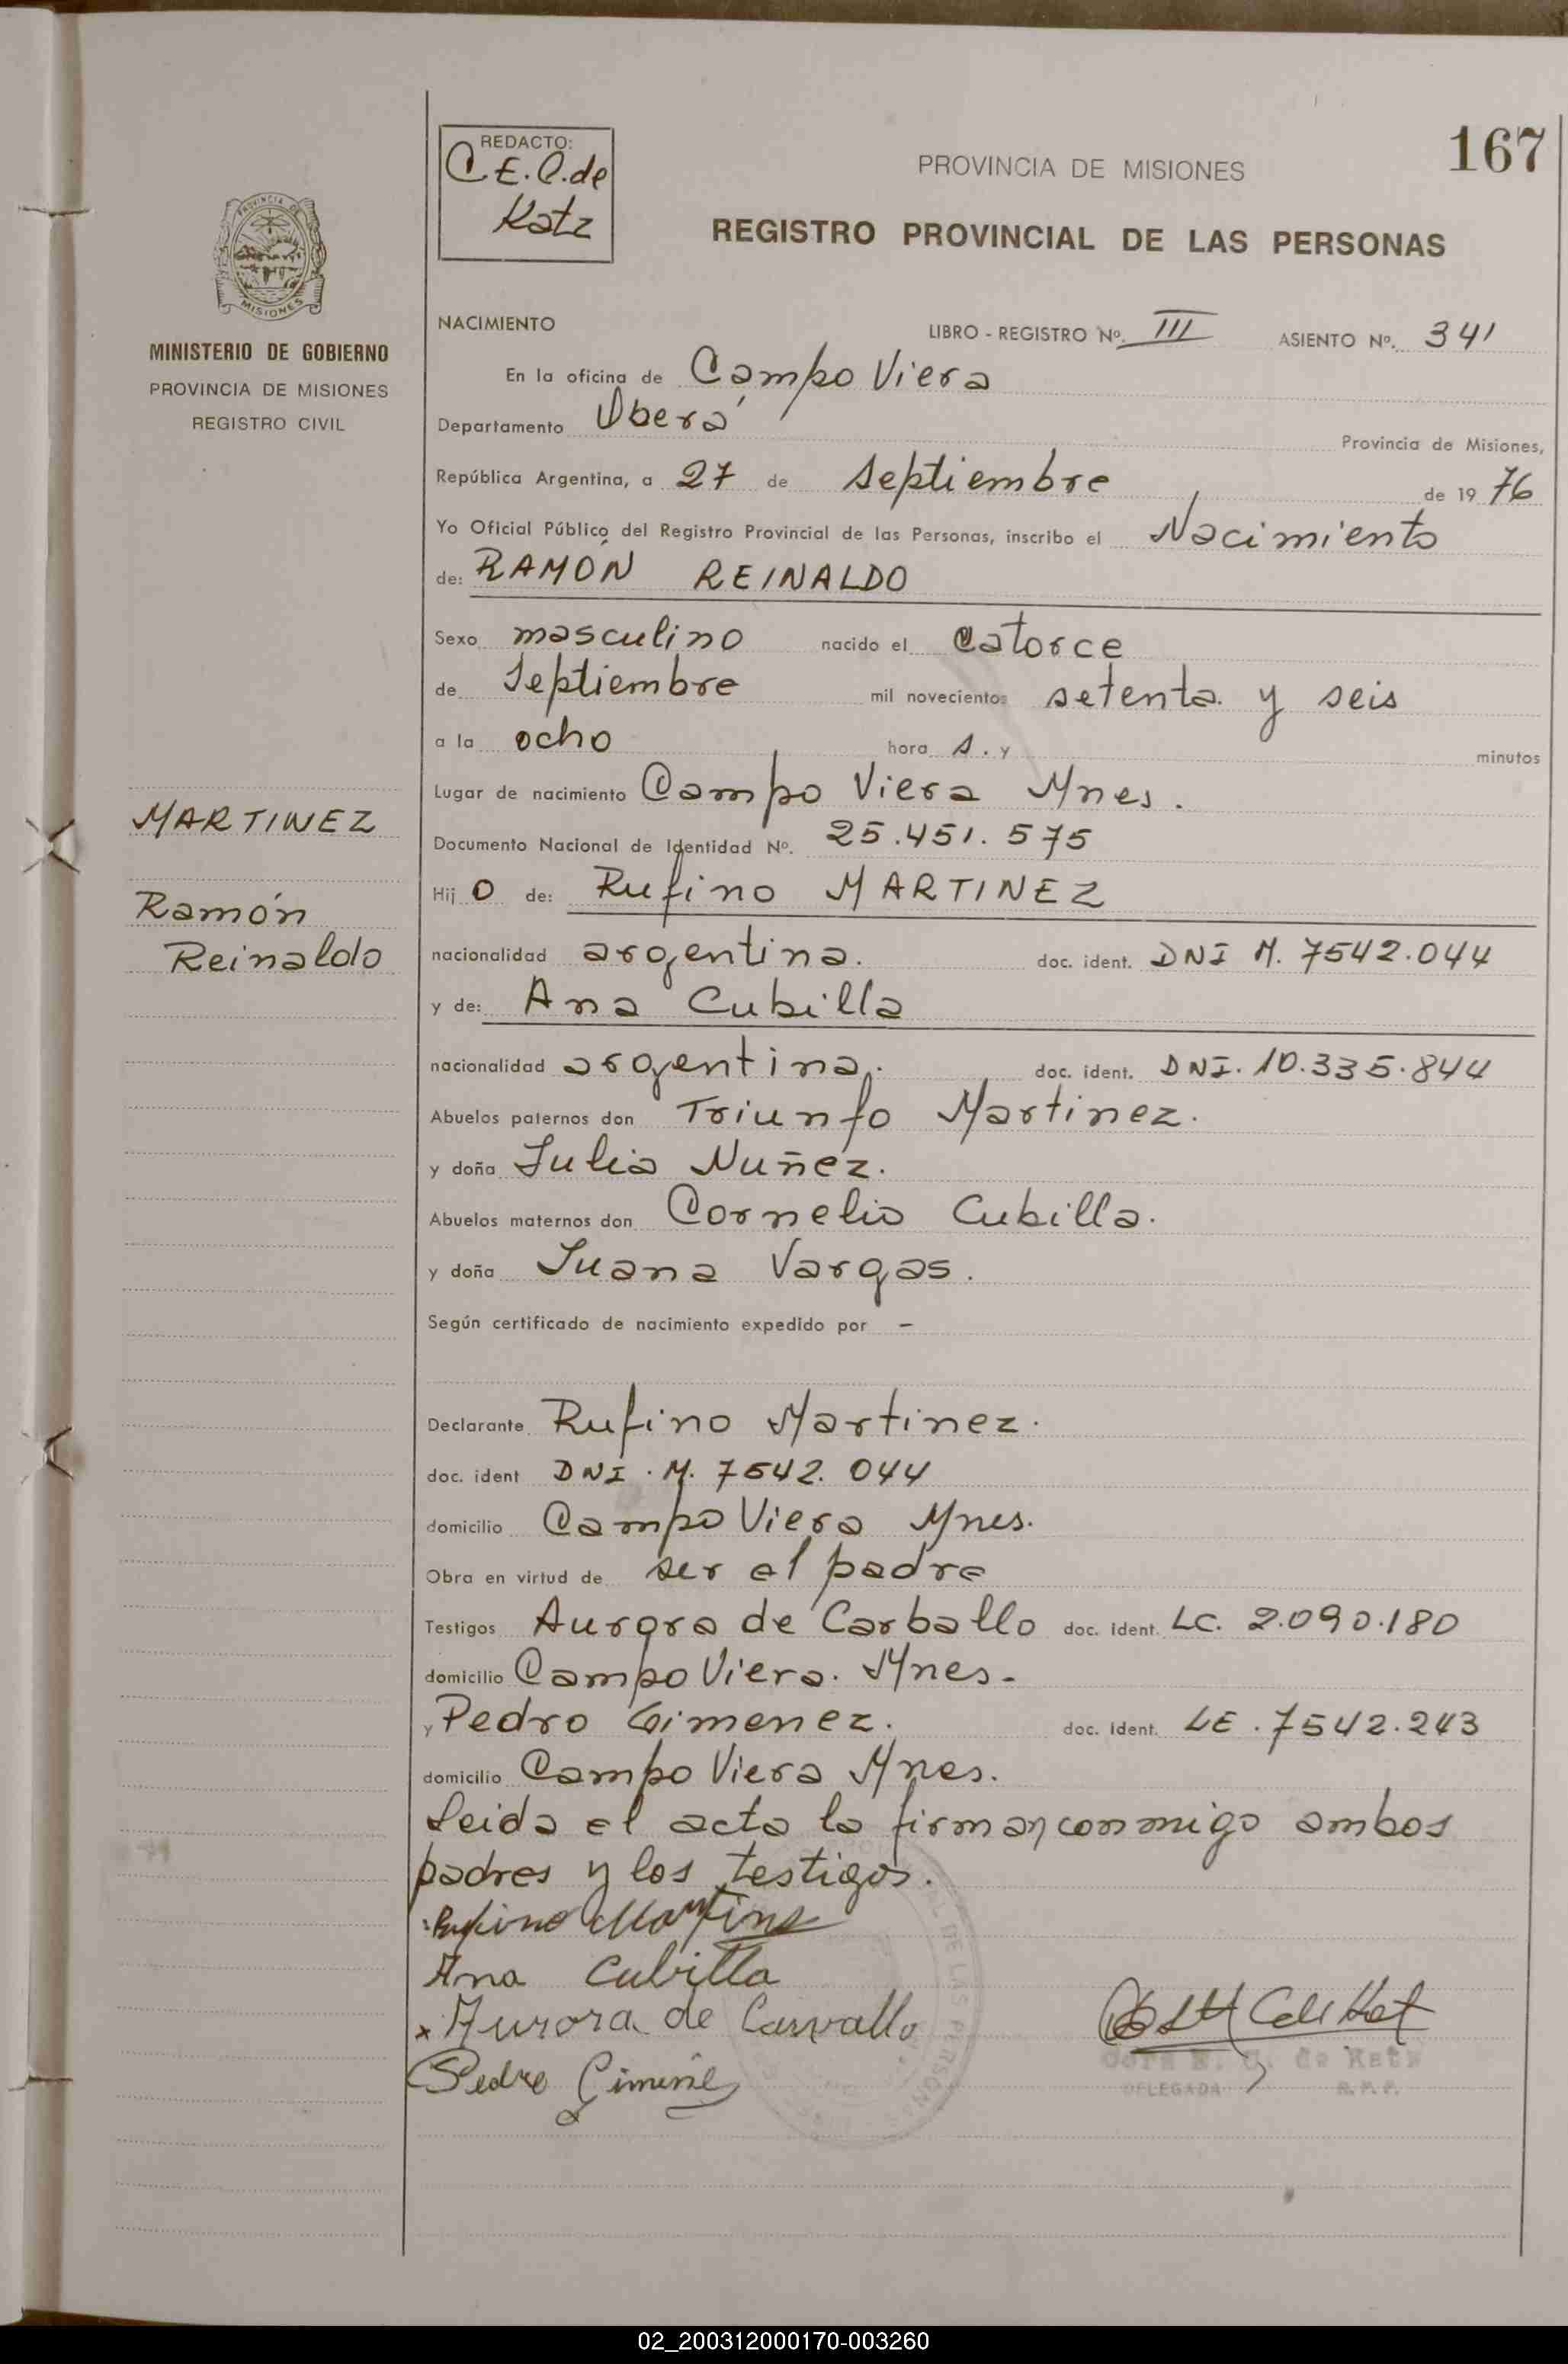 167
REDACTO:
C.E.C. de
Katz
PROVINCIA DE MISIONES
REGISTRO PROVINCIAL DE LAS PERSONAS
PROVINCIA DE
MISIONES
MINISTERIO DE GOBIERNO
PROVINCIA DE MISIONES
REGISTRO CIVIL
NACIMIENTO LIBRO - REGISTRO Nº. III ASIENTO Nº. 341
En la oficina de Campo Viera
Departamento Oberá Provincia de Misiones,
República Argentina, a 27 de septiembre de 19 76
Yo Oficial Público del Registro Provincial de las Personas, inscribo el Nacimiento
de: RAMÓN REINALDO
Sexo masculino nacido el catorce
de Septiembre mil novecientos setenta y seis
a la ocho hora s. y minutos
Lugar de nacimiento Campo Viera Mnes.
MARTINEZ
Documento Nacional de Identidad Nº. 25.451.575
Hij o de: Rufino MARTINEZ
Ramón
Reinaldo
nacionalidad argentina. doc. ident. DNI M. 7542.044
y de: Ana Cubilla
nacionalidad argentina. doc. ident. DNI. 10.335.844
Abuelos paternos don Triunfo Martinez.
y doña Julia Nuñez.
Abuelos maternos don Cornelio Cubilla.
y doña Juana Vargas.
Según certificado de nacimiento expedido por –
Declarante Rufino Martinez.
doc. ident DNI. M. 7542.044
domicilio Campo Viera Mnes.
Obra en virtud de ser el padre
Testigos Aurora de Carballo doc. ident. LC. 2.090.180
domicilio Campo Viera. Mnes.
y Pedro Gimenez. doc. ident. LE. 7542.243
domicilio Campo Viera Mnes.
Leida el acta la firman conmigo ambos
padres y los testigos.
Rufino Martins
Ana Cubilla
x Aurora de Carvallo
Pedro Gimene
de Katz
DELEGADA R.P.P.
DE LAS PERSONAS
02_200312000170-003260